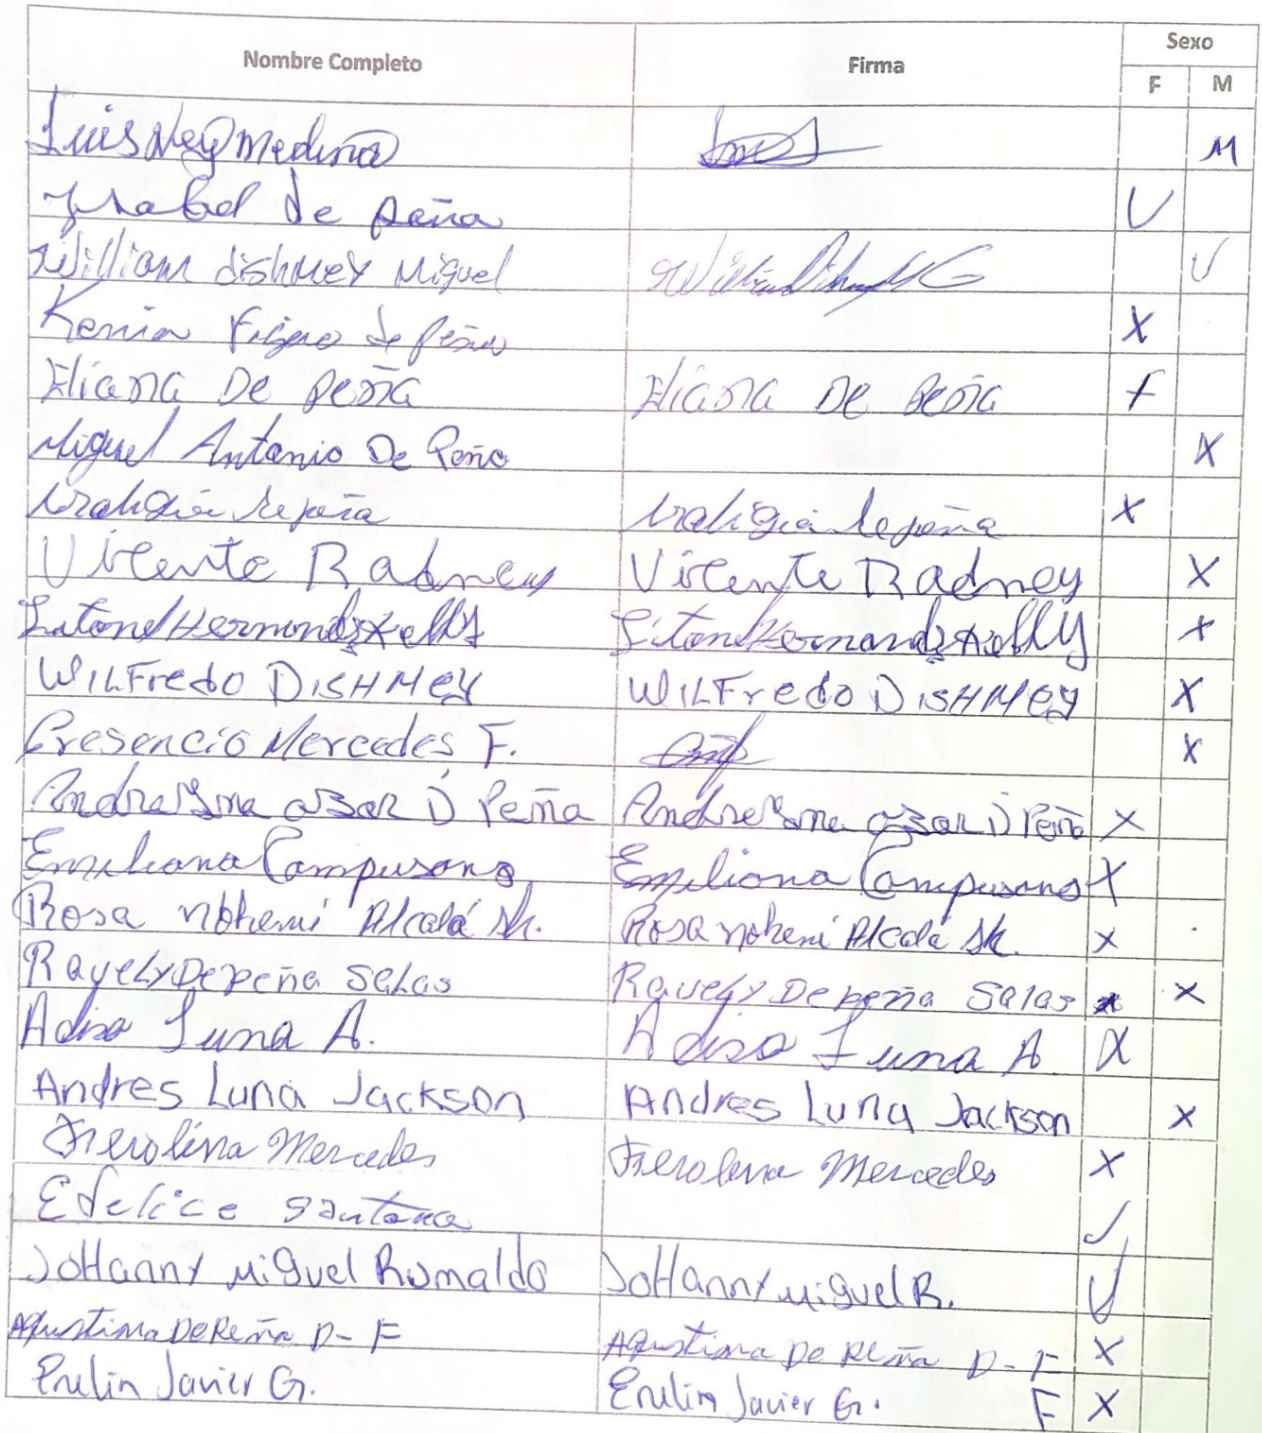 Nombre Completo Firma Sexo
F M
Luis Ney Medina M
Ysabel de Peña
William dishmey Miguel
Kenia de Peña X
Eliana De Peña Eliana De Peña F
Miguel Antonio De Peña X
de peña de peña X
Vicente Radney Vicente Radney X
Hernandez Kelly Hernandez Kelly X
WILFredo DISHMEY WILFredo DISHMEY X
Cresencio Mercedes F. X
D Peña D Peña X
Emiliana Campusano Emiliana Campusano X
Rosa Nohemi Alcalá Rosa Nohemi Alcalá X
Rayely De peña Salas Rayely De peña Salas X
Adisa Luna A. Adisa Luna A X
Andres Luna Jackson Andres Luna Jackson X
Mercedes Mercedes X
Edelice Santana
JoHanny Miguel Romaldo JoHanny Miguel R.
Agustina De Peña D-F Agustina De Peña D-F X
Javier G. Javier G. F X